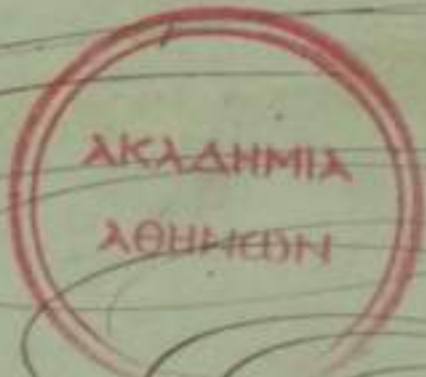 ΑΚΑΔΗΜΙΑ
ΑΘΗΝΩΝ